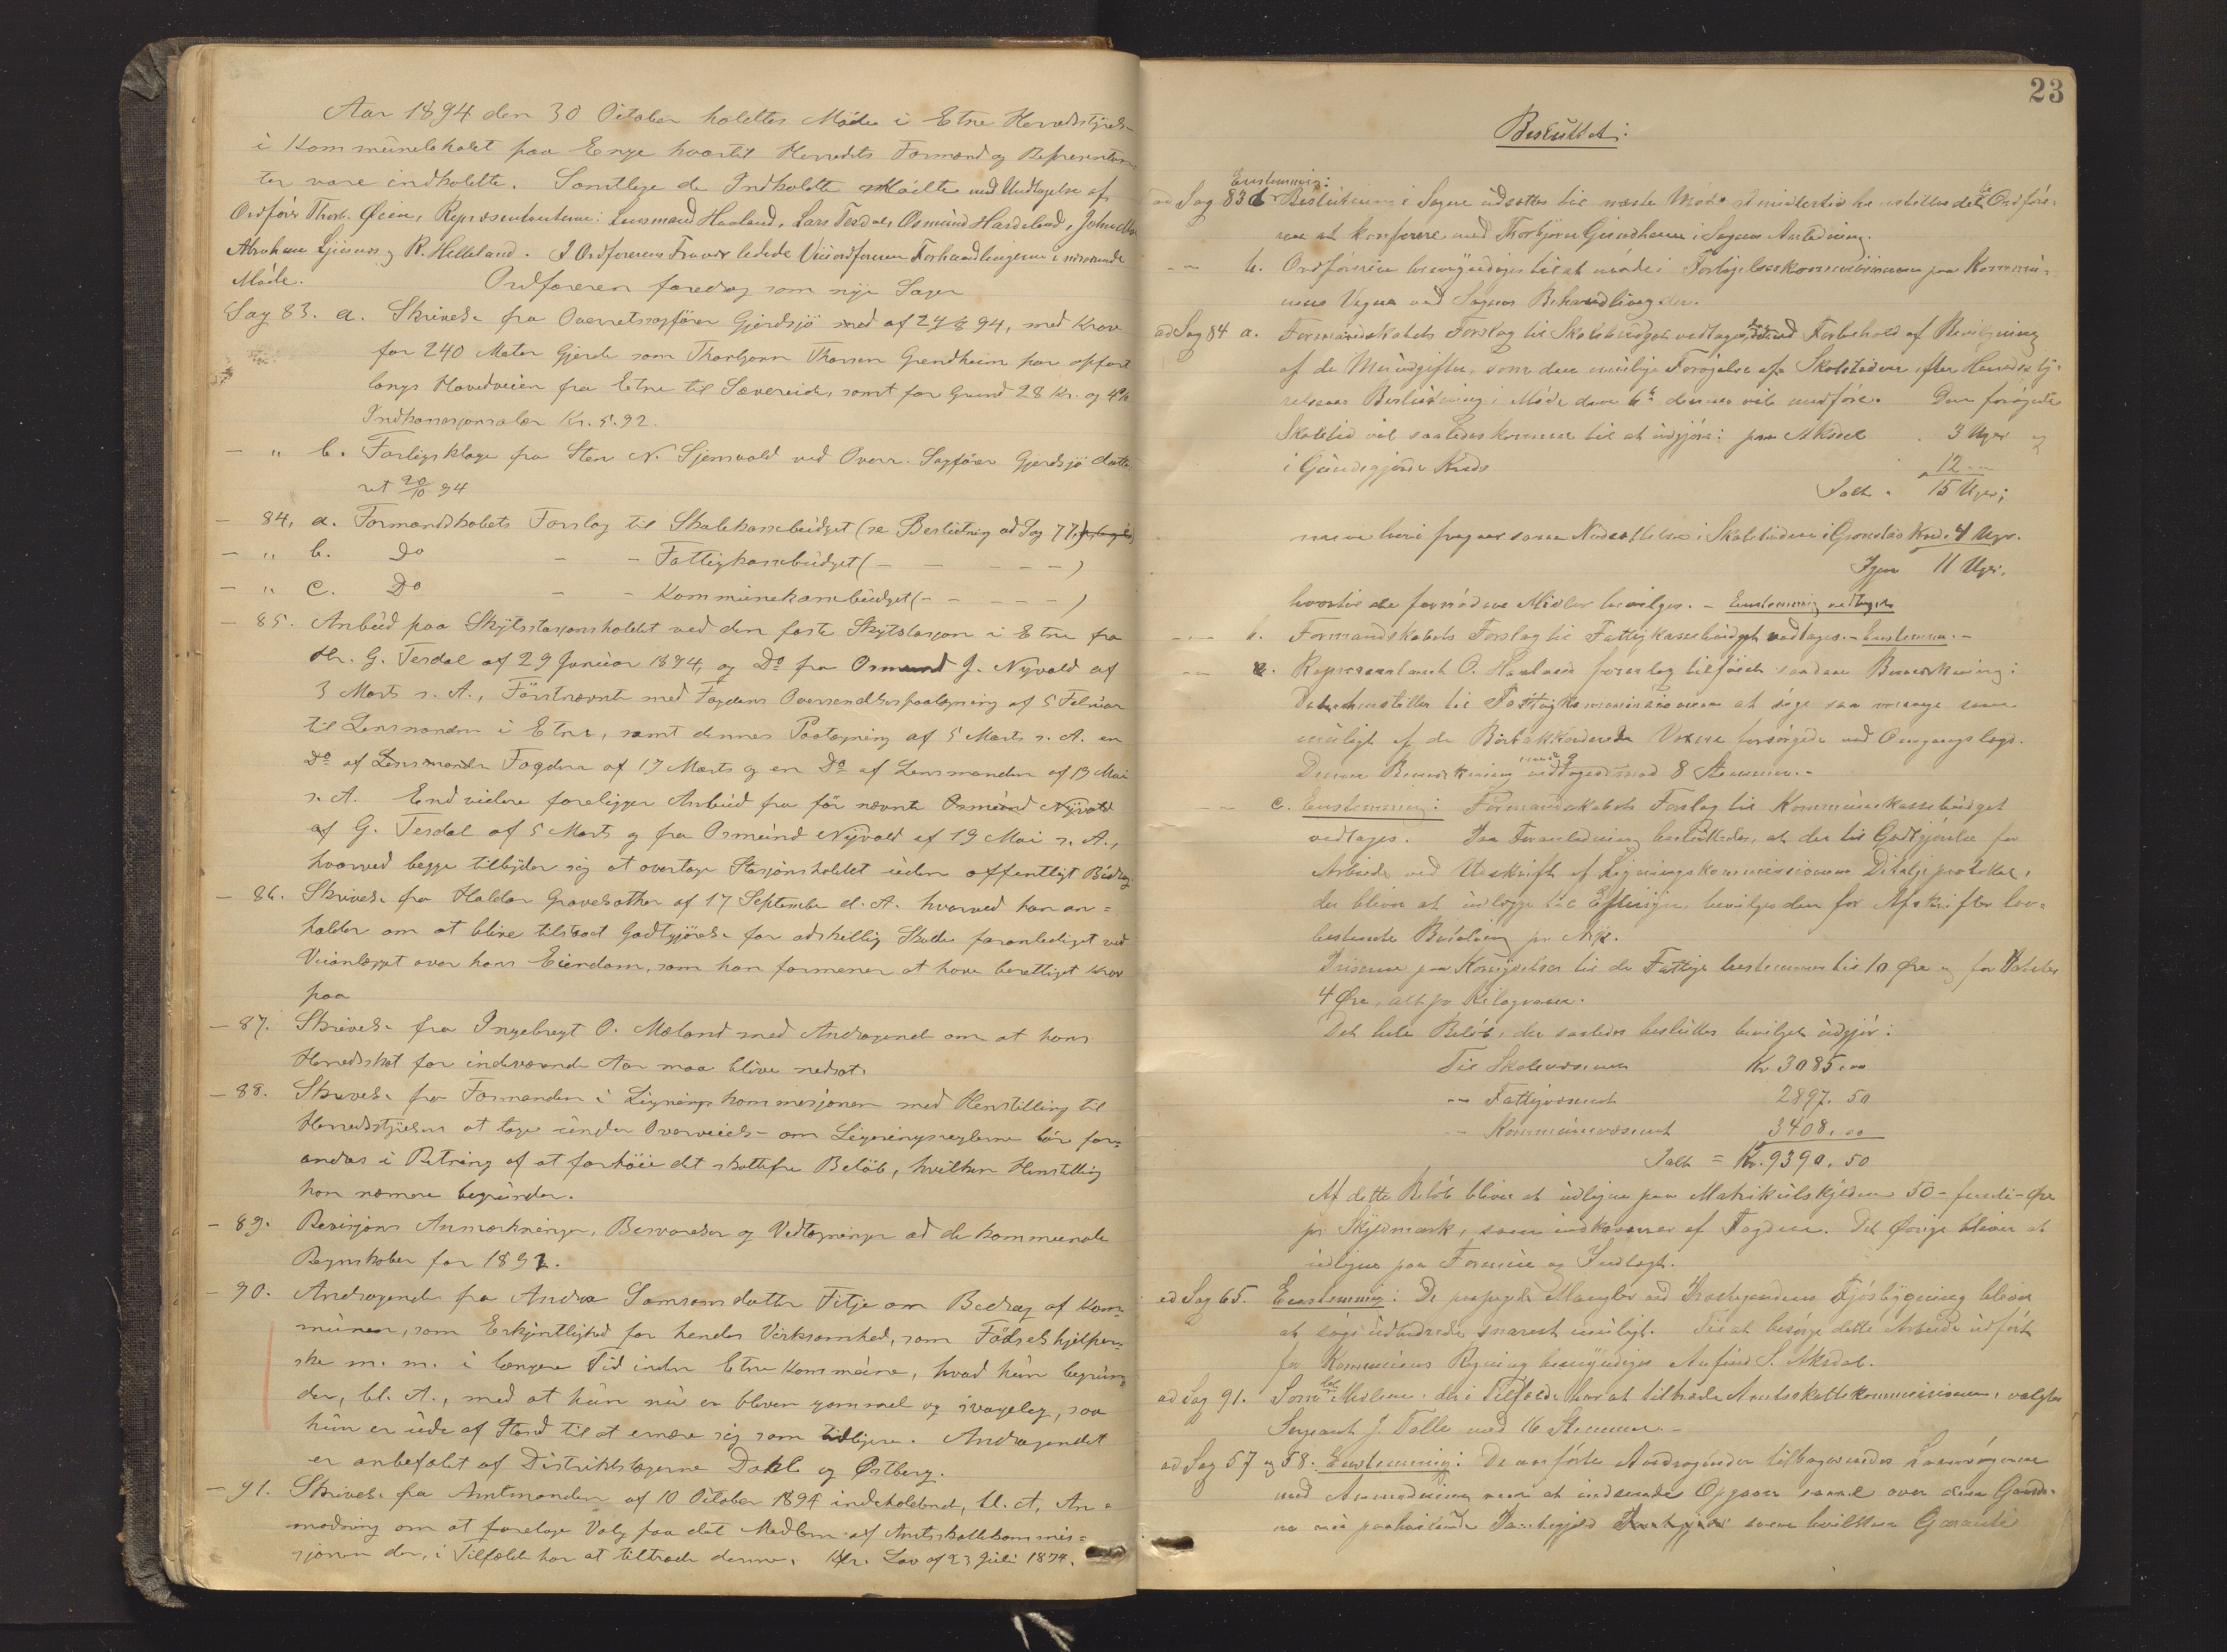 Aar 1894 den 30 October holdtes Møde i Etne Herredsstyrelse
i Kommunelokalet paa Enge hvortil Herredets Formænd og Repræsentan-
ter vare indkaldte. Samtlige de Indkaldte mödte med Undtagelse af
Ordförer Thorb. Øien, Repræsentanterne: Lensmand Haaland, Lars Tesdal, Osmund Hardeland, John
Abraham og R. Helleland. I Ordförerens Fravær ledede Viceordföreren Forhandlingerne i nærværende
Møde. Ordföreren foredrog som nye Sager
Sag 83. a. Skrivelse fra Overretssagfører Gjerdsjö med af 94, med Krav
for 240 Meter Gjerde som Thorbjørn Thorsen Grindheim har opført
langs Hovedveien fra Etne til Sævereide, samt for Grund 28 Kr. og 4%
Indkassasjonssalær Kr. 5.92.
- " b. Forligsklage fra Sten N. Sjemvold ved Overr. Sagfører Gjerdsjö date-
ret 20/10 94
- 84. a. Formandskabets Forslag til Skolekassebudget (se Beslutning ad Sag 77)
- " b. Do - - Fattigkassebudget (- - - - -)
- " c. Do - - Kommunekassebudget (- - - - -)
- 85. Anbud paa Skydsstasjonsholdet ved den faste Skydsstasjon i Etne fra
Hr. G. Tesdal af 29 Januar 1894, og Do fra Osmund J. Nyvold af
3 Marts s. A., Förstnævnte med Fogdens Oversendelsespaategning af 5 Februar
til Lensmanden i Etne, samt dennes Paategning af 5 Marts s. A. en
Do af Fogden af 17 Marts og en Do af Lensmanden af 19 Mai
s. A. End videre foreligger Anbud fra før nævnte Osmund Nyvold
af G. Tesdal af 5 Marts og fra Osmund Nyvold af 19 Mai s. A.,
hvorved begge tilbyder sig at overtage Stasjonsholdet uden offentligt Bidrag.
- 86. Skrivelse fra Haldor Gravelsæther af 17 September d. A. hvorved han an=
holder om at blive tilstaaet Godtgjörelse for adskillig Skade foranlediget ved
Veianlægget over hans Eiendom, som han formener at have berettiget Krav
paa
- 87. Skrivelse fra Ingebregt O. Mæland med Andragende om at hans
Herredsskat for indeværende Aar maa blive nedsat.
- 88. Skrivelse fra Formanden i Ligningskommisjonen med Henstilling til
Herredsstyrelsen at tage under Overveielse om Ligningsreglerne bör for=
andres i Retning af at forhöie det skattefri Belöb, hvilken Henstilling
han nærmere begrunder.
- 89. Revisjons Anmærkninger, Besvarelser og Vedtegninger ad de kommunale
Regnskaber for 1892.
- 90. Andragende fra Andrea Samsonsdatter Fitje om Bidrag af Kom-
munen, som Erkjentlighed for hendes Virksomhed, som Födselshjelper-
ske m. m. i længere Tid inden Etne Kommune, hvad hun begrun-
der, bl. A., med at hun nu er bleven gammel og svagelig, saa
hun er ude af Stand til at ernære sig som tidligere. Andragendet
er anbefalet af Distriktslægerne Dahl og Østberg.
- 91. Skrivelse fra Amtmanden af 10 October 1894 indeholdende, bl. A. An=
modning om at foretage Valg paa det Medlem af Amtsskattekommis=
sjonen der, i Tilfælde har at tiltræde denne. Kfr. Lov af 23 Juli 1894.
23
Besluttet:
Enstemmig:
ad Sag 83 a Beslutning i Sagen udsættes til næste Møde at imidlertid henstilles det til Ordföre-
ren at konferere med Thorbjørn Grindheim i Sagens Anledning.
- " - b. Ordföreren bemyndiges til at möde i Forligelseskommissionen paa Kommu-
nens Vegne ved Sagens Behandling der.
ad Sag 84 a. Formandskabets Forslag til Skolebudget vedtages, med Forbehold af Bevilgning
af de Merudgifter, som den mulige Forøgelse af Skoletiden efter Herredssty-
relsens Beslutning i Møde den 6te dennes vil medføre. Den forøgede
Skoletid vil saaledes komme til at udgjøre: paa Aksdal 3 Uger og
i Kreds 12 -"-
Ialt 15 Uger;
men herfra fragaar som Nedsættelse i Skoletiden i Kreds 4 Uger.
Igjen 11 Uger,
hvortil de fornødne Midler bevilges. - Enstemmig vedtaget
- " - b. Formandskabets Forslag til Fattigkassebudget vedtages. - Enstemm. -
- " - Repræsentant O. Haaland foreslog tilföiet saadan Bemærkning:
Det henstilles til Fattigkommissionen at søge saa mange som
muligt af de Bortakkorderede Voxne forsørgede ved Omgangslægd.
Denne Bemærkning vedtoges med 9 mod 8 Stemmer. -
- " - c. Enstemmig: Formandskabets Forslag til Kommunekassebudget
vedtages. Paa Foranledning besluttedes, at der til Godtgjørelse for
Arbeide ved Udskrift af Ligningskommissionens Detaljeprotokol,
der bliver at udlægge til Eftersyn bevilges den for Afskrifter lov-
bestemte Betaling pr. Ark.
Priserne paa Kornydelser til de Fattige bestemmes til 10 Øre og for Poteter
4 Øre, alt pr. Kilogram.
Det hele Beløb, der saaledes besluttes bevilget udgjør:
Til Skolevæsenet Kr 3085.00
-"- Fattigvæsenet 2897.50
-"- Kommunevæsenet 3408.00
Ialt = Kr. 9390.50
Af dette Beløb bliver at udligne paa Matrikulskylden 50 - femti - Øre
pr. Skyldmark, som indkræves af Fogden. Det Øvrige bliver at
udligne paa Formue og Indtægt.
ad Sag 65. Enstemmig: De paapegede Mangler ved Præstegaardens Fjøsbygning bliver
at søge udbedrede snarest muligt. Til at besørge dette Arbeide udført
for Kommunens Regning bemyndiges Anfind S. Aksdal.
ad Sag 91. Som Medlem, der i Tilfælde har at tiltræde Amtsskattekommissionen, valgtes
Sergeant J. Tolle med 16 Stemmer. -
ad Sag 57 og 58. Enstemmig: De anførte Andragender tilbagesendes
med Anmodning om at indsende Opgave saavel over den Gaarde-
ne nu paahvilende Pantegjæld som hvilken Garanti